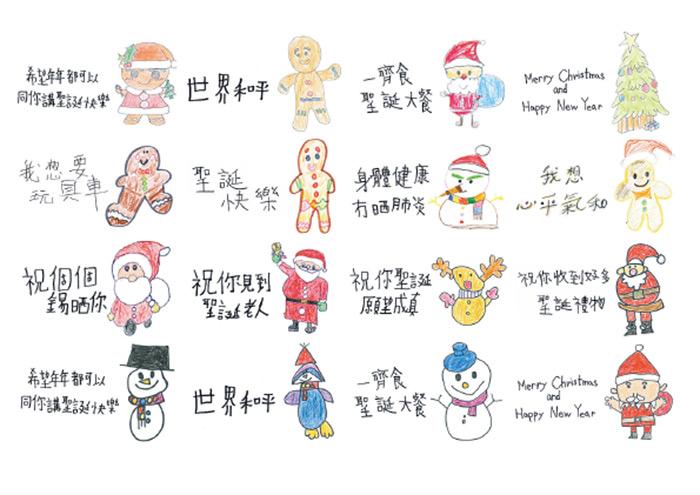 希望年年都可以
同你講聖誕快樂
世界和平
一齊食
聖誕大餐
Merry Christmas
and
Happy New Year
我想要
玩具車
聖誕
快樂
身體健康
冇晒肺炎
我想
心平氣和
祝個個
錫晒你
祝你見到
聖誕老人
祝你聖誕
願望成真
祝你收到好多
聖誕禮物
希望年年都可以
同你講聖誕快樂
世界和平
一齊食
聖誕大餐
Merry Christmas
and
Happy New Year